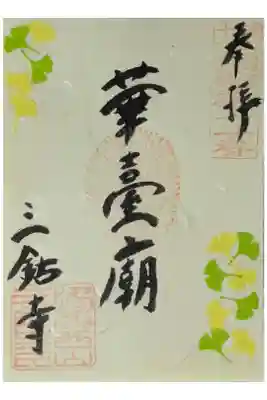 奉拝
華臺廟
三鈷寺